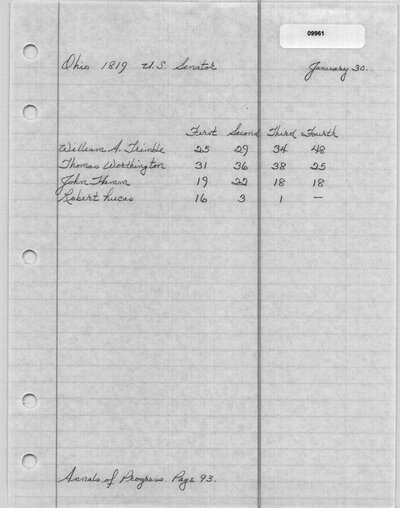 09961
Ohio 1819 U.S. Senator January 30.
First Second Third Fourth
William A. Trimble 25 29 34 48
Thomas Worthington 31 36 38 25
John Hamm 19 22 18 18
Robert Lucas 16 3 1 —
Annals of Progress. Page 93.